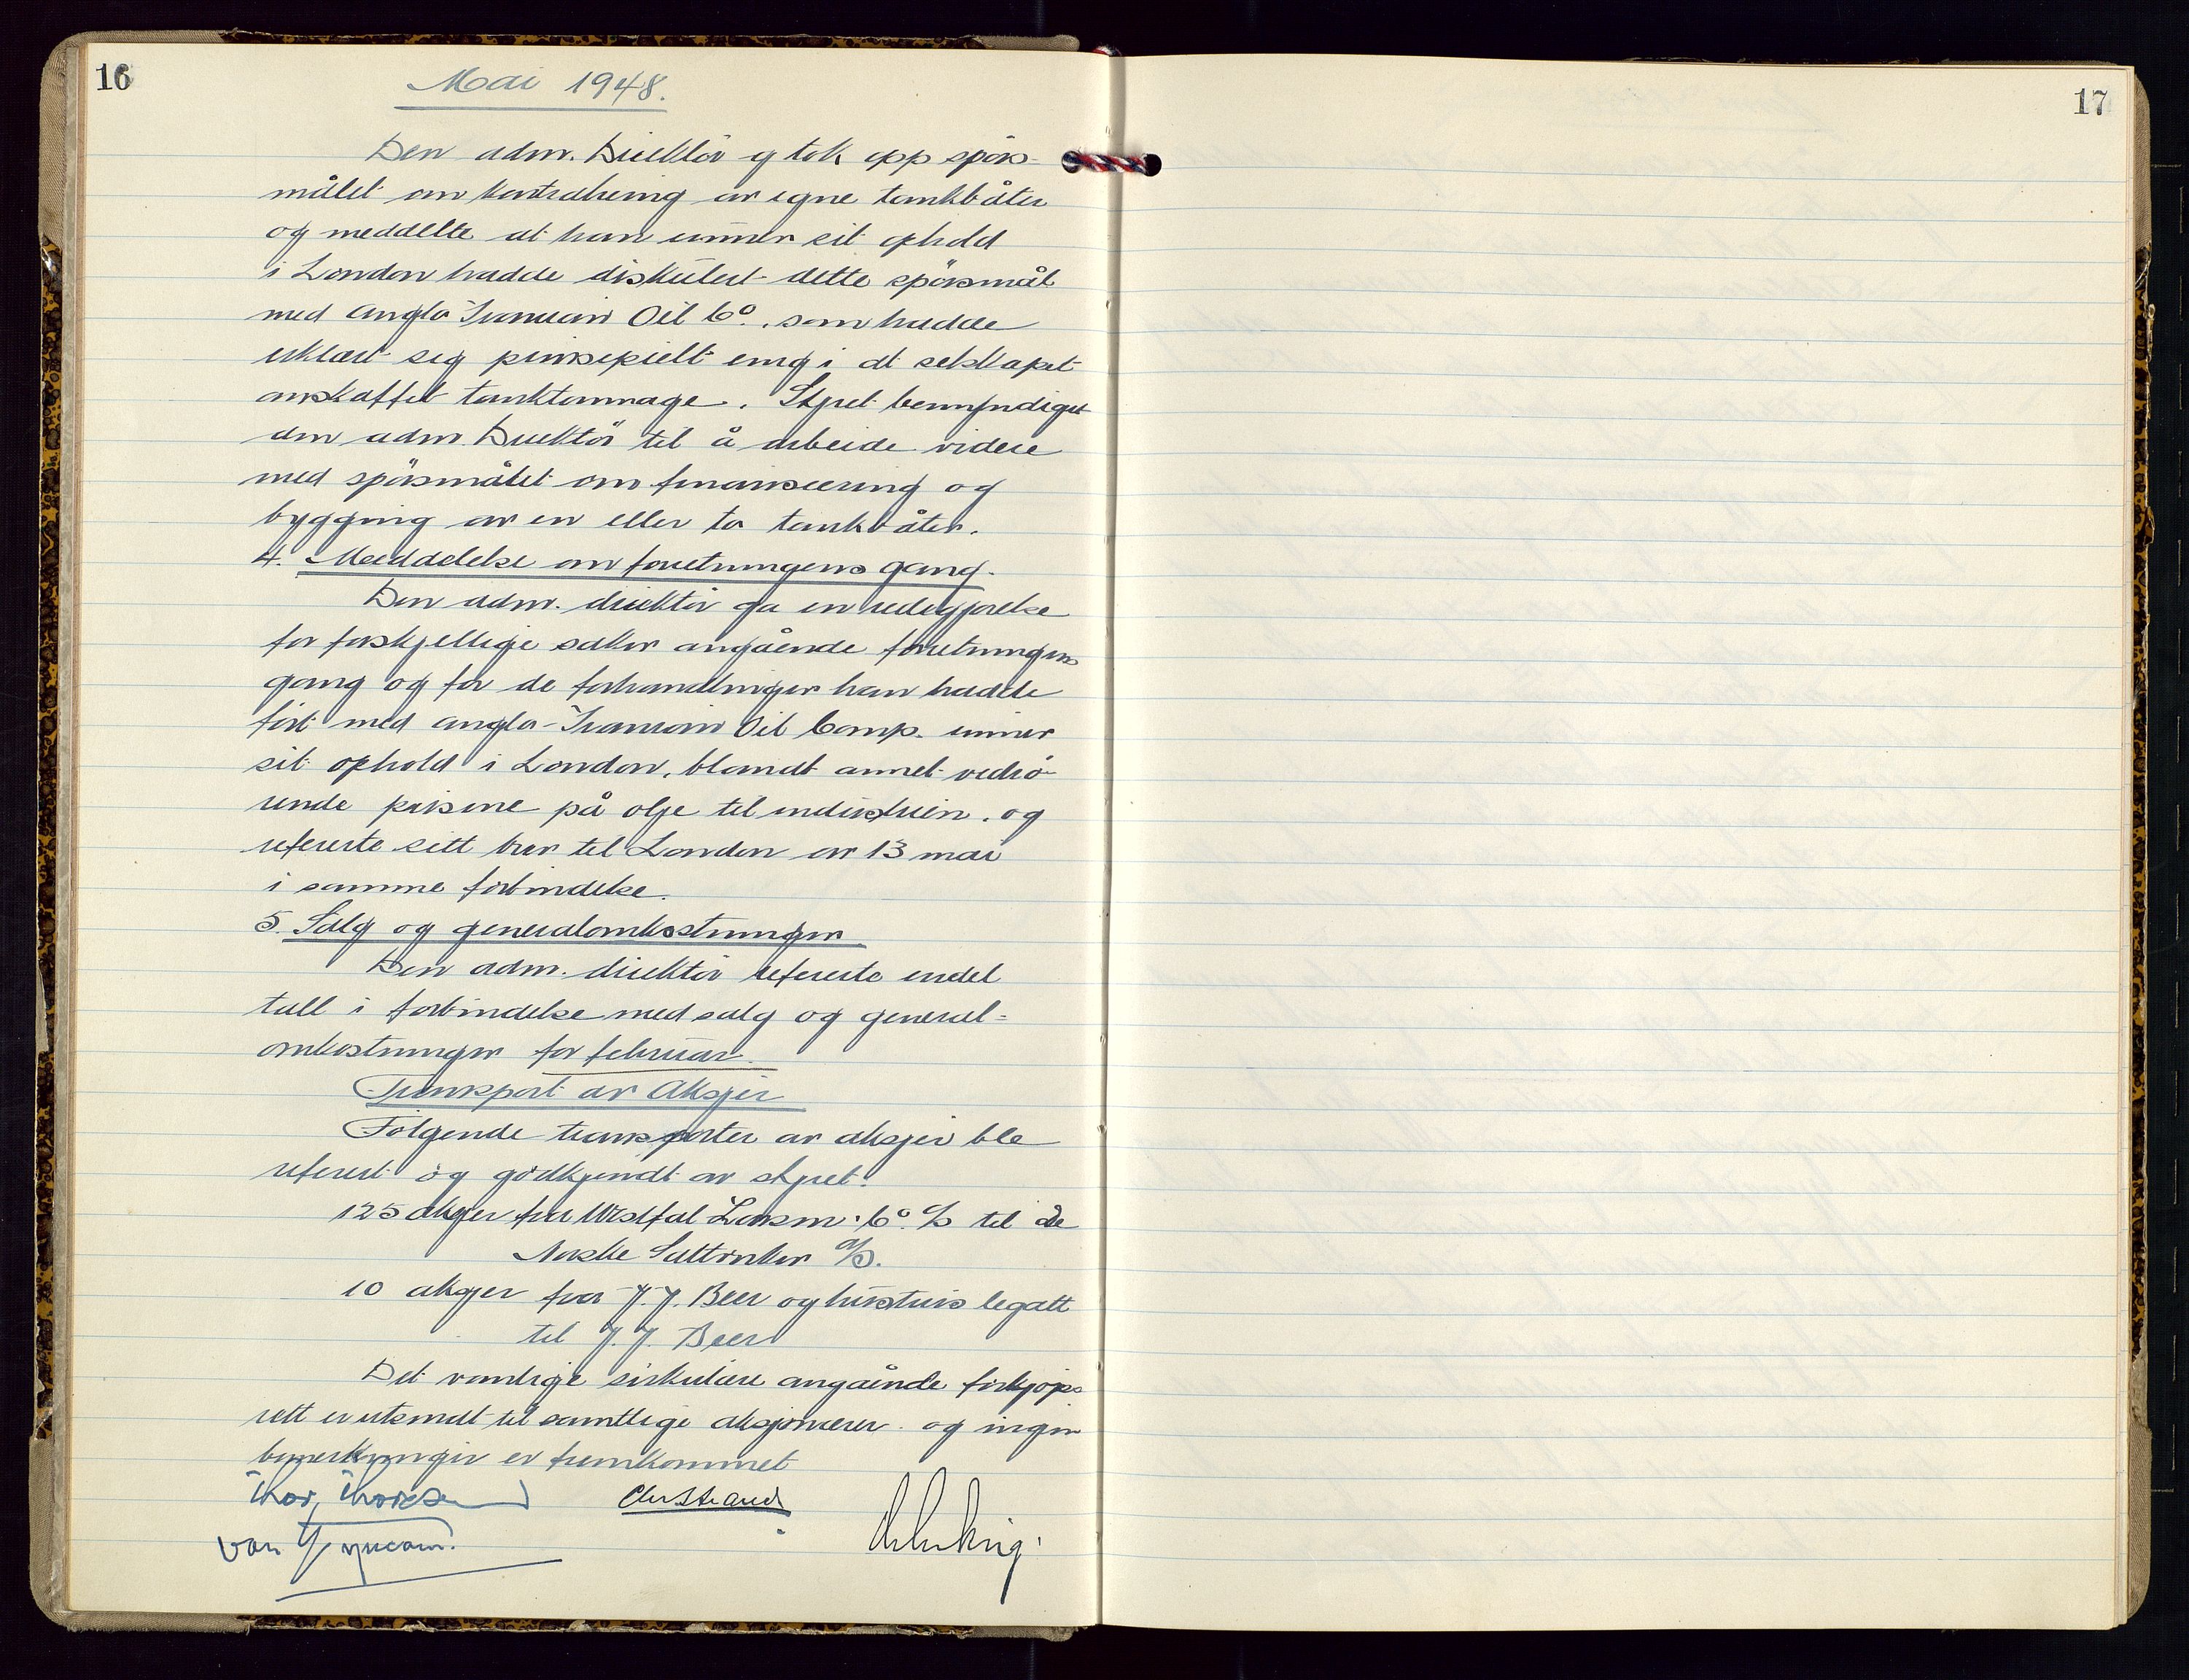 16
Mai 1948.
Den adm. Direktör g tok opp spörs-
målet om kontrahering av egne tankbåter
og meddelte at han under sit ophold
i London hadde diskutert dette spörsmål
med Anglo Iranian Oil Co. som hadde
erklært seg prinsipielt enig i at selskapet
anskaffet tanktonnage. Styret bemyndiget
den adm. Direktör til å arbeide videre
med spörsmålet om finansiering og
bygging av en eller to tankbåter.
4. Meddelelse om forretningens gang.
Den adm. direktör ga en redegjørelse
for forskjellige saker angående forretningens
gang og for de forhandlinger han hadde
fört med Anglo-Iranian Oil Comp. under
sit ophold i London, blandt annet vedrö-
rende prisene på olje til industrien, og
refererte sitt brev til London av 13 mai
i samme forbindelse.
5. Salg og generalomkostninger
Den adm. direktör refererte endel
tall i forbindelse med salg og general-
omkostninger for februar.
Transport av Aksjer
Fölgende transporter av aksjer ble
referert og godkjendt av styret:
125 aksjer fra Westfal Larsen & Co. A/S til De
Norske Saltverker A/S.
10 aksjer fra J. J. Beer og hustrus legatt
til J. J. Beer
Det vanlige sirkulære angående forkjøps
rett er utsendt til samtlige aksjonærer og ingen
bemerkninger er fremkommet
Thor Thoresen
17